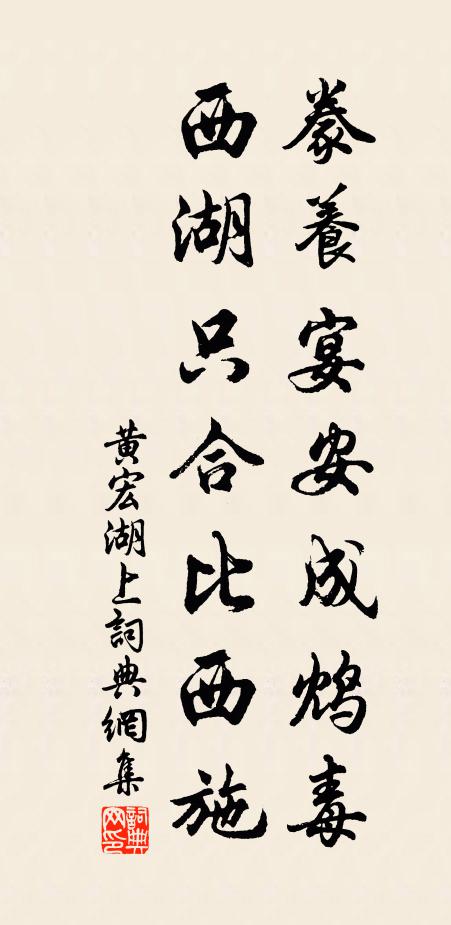 豢養宴安成鴆毒
西湖只合比西施
黃宏湖上詞典網集
詞典網印